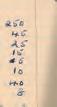 250
45
25
15
45
10
40
8